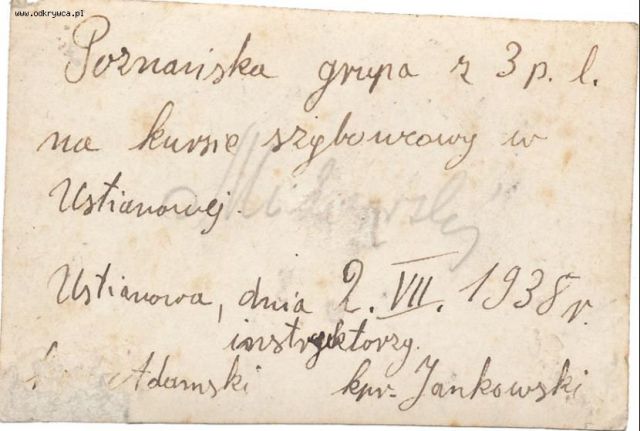 www.odkrywca.pl
Poznańska grupa z 3 p. l.
na kursie szybowcowy w
Ustianowej.
Ustianowa, dnia 2. VII. 1938 r.
instruktorzy.
Adamski kpr. Jankowski